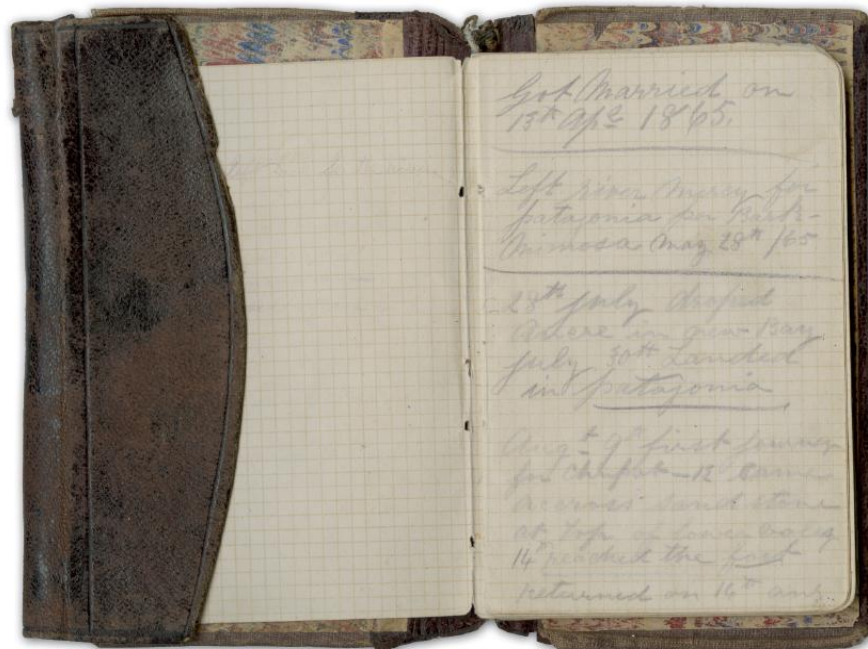 Got Married on
13th Apl 1865.
Left river Mercy for
patagonia per Bark
Mimosa May 28th /65
28th July droped
Ancre in new Bay
July 30th Landed
in patagonia
Augt 9th first journey
for Chupat - 12 came
accross sand stone
at Top of lower valey
14th reached the fort
returned on 16th aug